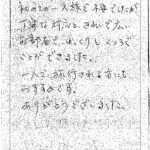 初めての一人旅で不安でしたが
丁寧な対応と、きれいで広い
お部屋で、ゆっくりしくつろぐ
ことができました。
一人で旅行される方にも
おすすめです。
ありがとうございました。